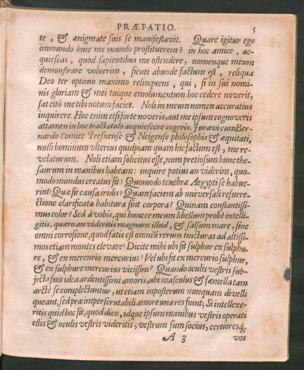 PRÆFATIO. 5
te, & ænigmate suis se manifestavit. Quare igitur ego
immundo huic me mundo prostituerem? in hoc amice, ac-
quiescas, quod sapientibus me ostendere, nonæque meum
demonstrare voluerim, sicuti abunde factum est, reliqua
Deo ter optimo maximo relinquens, qui, si in sui nomi-
nis gloriam & mei tuique emolumentum hoc cedere noverit,
sat citò me tibi notum faciet. Noli in meum nomen accuratius
inquirere. Hoc enim etsi forte noveris, aut me ipsum cognoveris
attamen in hoc tractatulo acquiescere cogeris. Juravi enim
nardo Comite Trevisense & Neigense philosophis & æquitati,
nulli hominum ulterius quidpiam quàm hic factum est, me re-
velaturum. Noli etiam solicitus esse, num pretiosum hunc the-
saurum in manibus habeam: inquire potius an viderim, quo-
modo mundus creatus sit? Quomodo tenebræ Ægypti se habue-
rint? Quæ sit causa iridis? Quam faciem ab universali resurre-
ctione clarificata habitura sint corpora? Quinam constantissi-
mus color? Sed à vobis, qui huncce meum libellum probè intelli-
gitis, quæro an videritis magnum illud, & salsum mare, sine
omni corrosione, quod satis est omnis rerum tincturas ad altissi-
mos etiam montes elevare? Dicite mihi ubi fit sulphur ex sulphu-
re, & ex mercurio mercurius? Vel ubi fit ex mercurio sulphur,
& ex sulphure mercurius vicissim? Quando oculis vestris sub-
jecta fuit idea ardentissimi amoris, ubi masculus & fœmella tam
arctè se complectuntur, ut etiam in posterum nunquam divelli
queant, sed præ imperscrutabili amore una res sunt; Si intellexe-
ritis quid hoc sit, quod dico, idque ipsum manibus vestris operati
estis & oculis vestris videritis, vestrum sum socius, certiorésq;
A 3 vos